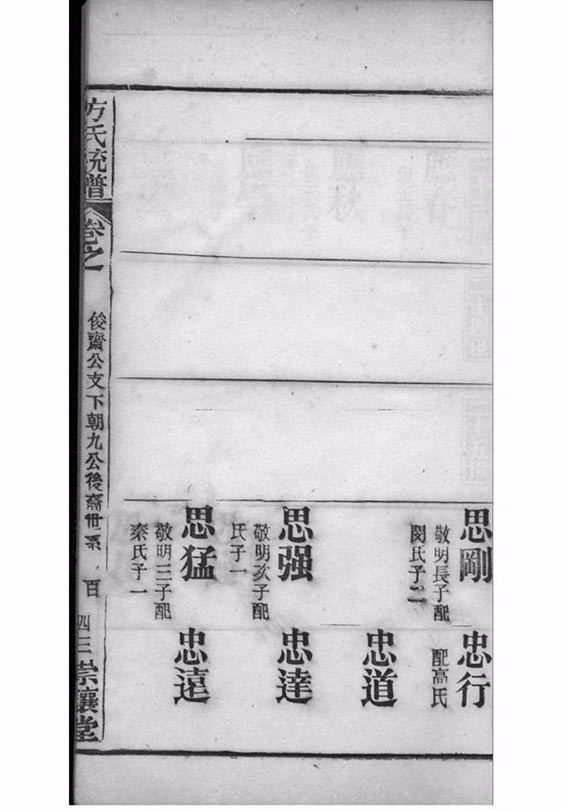 思剛
敬明長子配
閔氏子二
思强
敬明次子配
氏子一
思猛
敬明三子配
秦氏子一
忠行
配高氏
忠道
忠達
忠遠
方氏統譜
卷之
俊齋公支下朝九公後裔世系
百
四三
崇讓堂